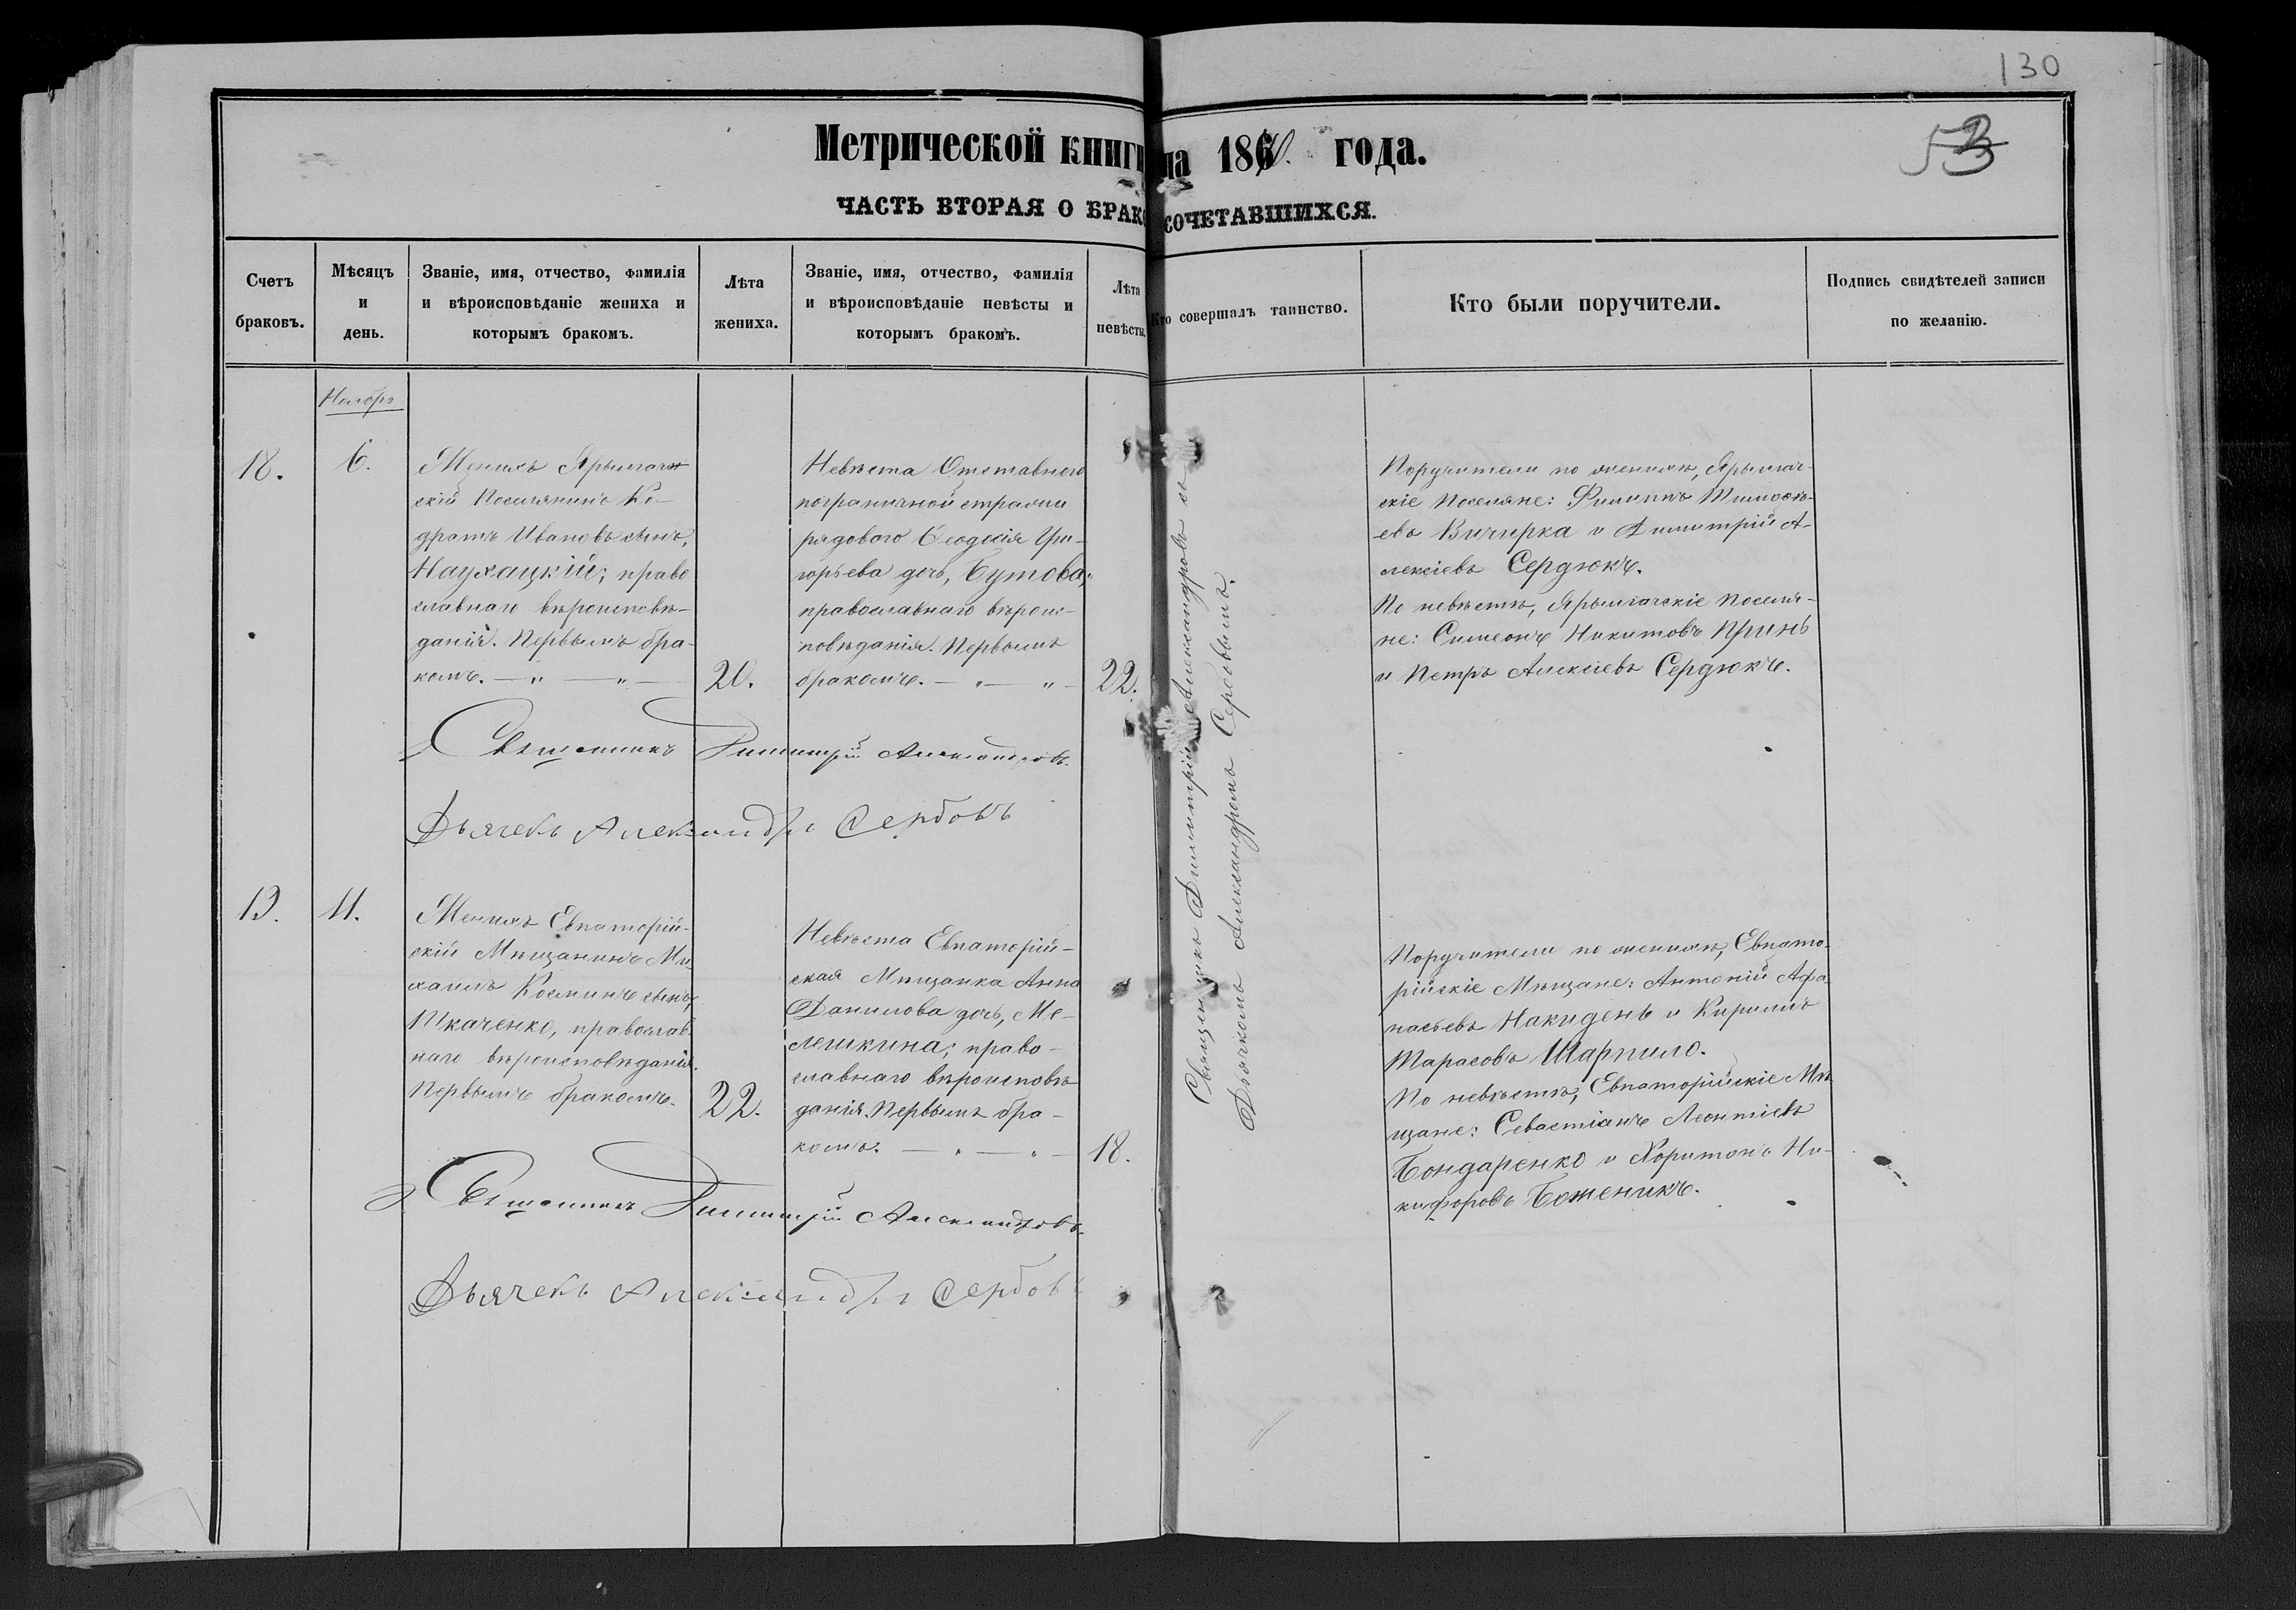 130
53
Метрической книги на 1870. года.
ЧАСТЬ ВТОРАЯ О БРАКОСОЧЕТАВШИХСЯ.
Счетъ
браковъ.
Мѣсяцъ
и
день.
Званіе, имя, отчество, фамилія
и вѣроисповѣданіе жениха и
которымъ бракомъ.
Лѣта
жениха.
Званіе, имя, отчество, фамилія
и вѣроисповѣданіе невѣсты и
которымъ бракомъ.
Лѣта
невѣсты.
Кто совершалъ таинство.
Кто были поручители.
Подпись свидѣтелей записи
по желанію.
Ноябрь
18.
6.
Женихъ Ярылгач-
скій Поселянинъ Ко-
дратъ Ивановъ сынъ,
Наухацкій; право
славнаго вѣроисповѣ-
данія. Первымъ бра-
комъ. — „ — „ —
20.
Невѣста Отставнаго
пограничной стражи
рядового Ѳеодосія Гри-
горьева дочь, Бутова;
православнаго вѣроис-
повѣданія. Первымъ
бракомъ. — „ — „ —
22.
Священникъ Димитрій Александровъ съ
Дьячкомъ Александромъ Сербовымъ.
Поручители по женихѣ, Ярылгач-
скіе Поселяне: Филиппъ Тимоѳѣ-
евъ Вичирка и Димитрій А-
лексіевъ Сердюкъ.
По невѣстѣ, Ярылгачскіе Поселя-
не: Симеонъ Никитовъ Принь
и Петръ Алексіевъ Сердюкъ.
Священникъ Димитрій Александровъ.
Дьячекъ Александръ Сербовъ
19.
11.
Женихъ Евпаторій-
скій Мѣщанинъ Ми-
хаилъ Косминъ сынъ,
Ткаченко, православ-
наго вѣроисповѣданія.
Первымъ бракомъ.
22.
Невѣста Евпаторій-
ская Мѣщанка Анна
Данилова дочь, Ме-
лешкина; право-
славнаго вѣроисповѣ-
данія. Первымъ бра-
комъ. — „ — „ —
18.
Поручители по женихѣ, Евпато-
рійскіе Мѣщане: Антоній Аѳа-
насьевъ Накидень и Кириллъ
Тарасовъ Шарпило.
По невѣстѣ, Евпаторійскіе Мѣ-
щане: Севастіанъ Леонтіевъ
Бондаренко и Харитонъ Ни-
кифоровъ Боженикъ.
Священникъ Димитрій Александровъ.
Дьячекъ Александръ Сербовъ